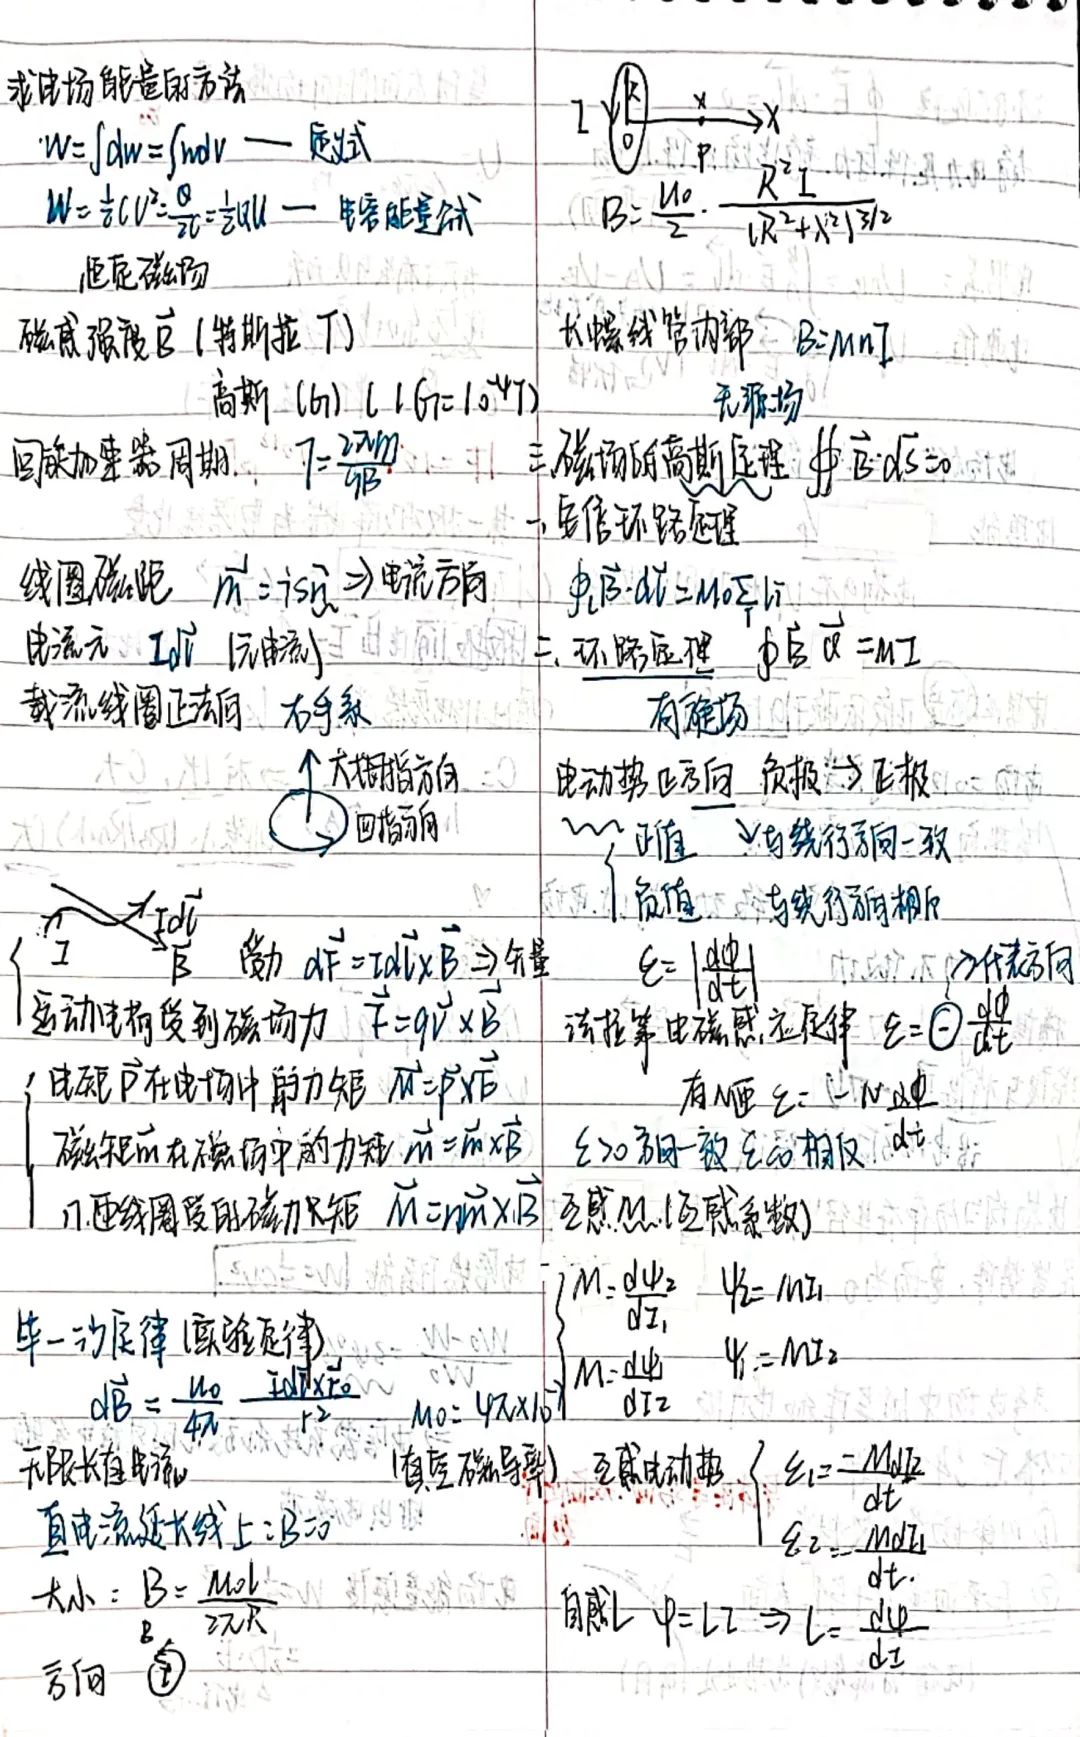 求电场能量的方法
W=∫dw=∫wdv — 定义式
W=½CV²=Q/2C=½QU — 电容能量公式
恒定磁场
磁感强度B⃗ (特斯拉 T)
高斯 (G) (1G=10⁻⁴T)
回旋加速器周期 T=2πm/qB
线圈磁距 m⃗=isn⃗ ⇒电流方向
电流元 Idl⃗ (元电流)
载流线圈正法向 右手系
大拇指方向
四指方向
Idl⃗
I B⃗ 受力 dF⃗=Idl⃗×B⃗ ⇒矢量
运动电荷受到磁场力 F⃗=qv⃗×B⃗
电矩P⃗在电场中的力矩 M⃗=P⃗×E⃗
磁矩m⃗在磁场中的力矩 m⃗=m⃗×B⃗
n匝线圈受的磁力矩 M⃗=nm⃗×B⃗
毕一沙定律 (实验定律)
dB⃗=μ₀/4π Idl⃗×r⃗₀/r² μ₀=4π×10⁻⁷
无限长直电流 (真空磁导率)
直电流延长线上:B=0
大小:B=μ₀I/2πR
B
方向 I
I R O x P X
B=μ₀/2·R²I/(R²+x²)^3/2
长螺线管内部 B=μnI
无源场
二.磁场的高斯定理 ∯B⃗·dS⃗=0
一、安倍环路定理
∮_L B⃗·dl⃗=μ₀ΣIi
二、环路定理 ∮B⃗ dl⃗=μI
有旋场
电动势正方向 负极→正极
正值 与绕行方向一致
负值 与绕行方向相反
ε=|dφ/dt| ⇒代表方向
法拉第电磁感应定律 ε=⊖dφ/dt
有N匝 ε=-Ndφ/dt
ε>0方向一致 ε<0相反
互感M(互感系数)
M=dψ₂/dI₁ ψ₂=MI₁
M=dψ₁/dI₂ ψ₁=MI₂
互感电动势 ε₁=-MdI₂/dt
ε₂=-MdI₁/dt.
自感L ψ=LI ⇒L=dψ/dI